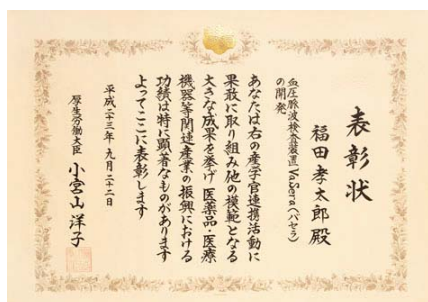 表彰状
福田孝太郎 殿
血圧脈波検査装置 VaSera(バセラ)
の開発
あなたは右の産学官連携活動に
果敢に取り組み他の模範となる
大きな成果を挙げ医薬品・医療
機器等関連産業の振興における
功績は特に顕著なものがあります
よってここに表彰します
平成二十三年九月二十二日
厚生労働大臣 小宮山洋子